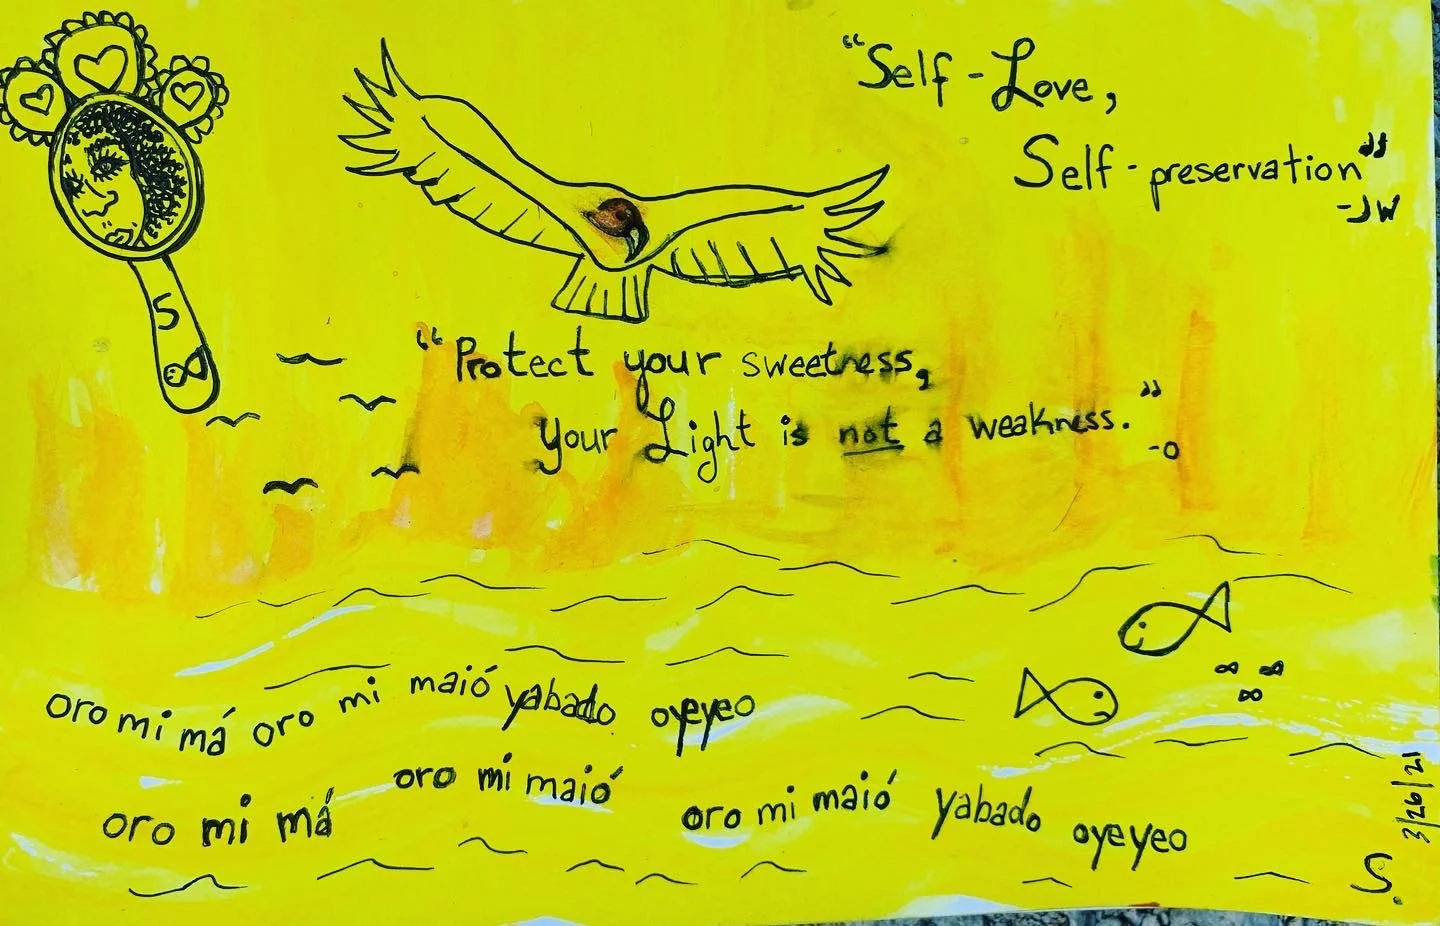 "Self-Love,
Self-preservation"
-JW
5
"Protect your sweetness,
your Light is not a weakness."
-O
oro mi má oro mi maió yabado oyeyeo
oro mi má oro mi maió oro mi maió yabado oyeyeo
3/26/21
S.